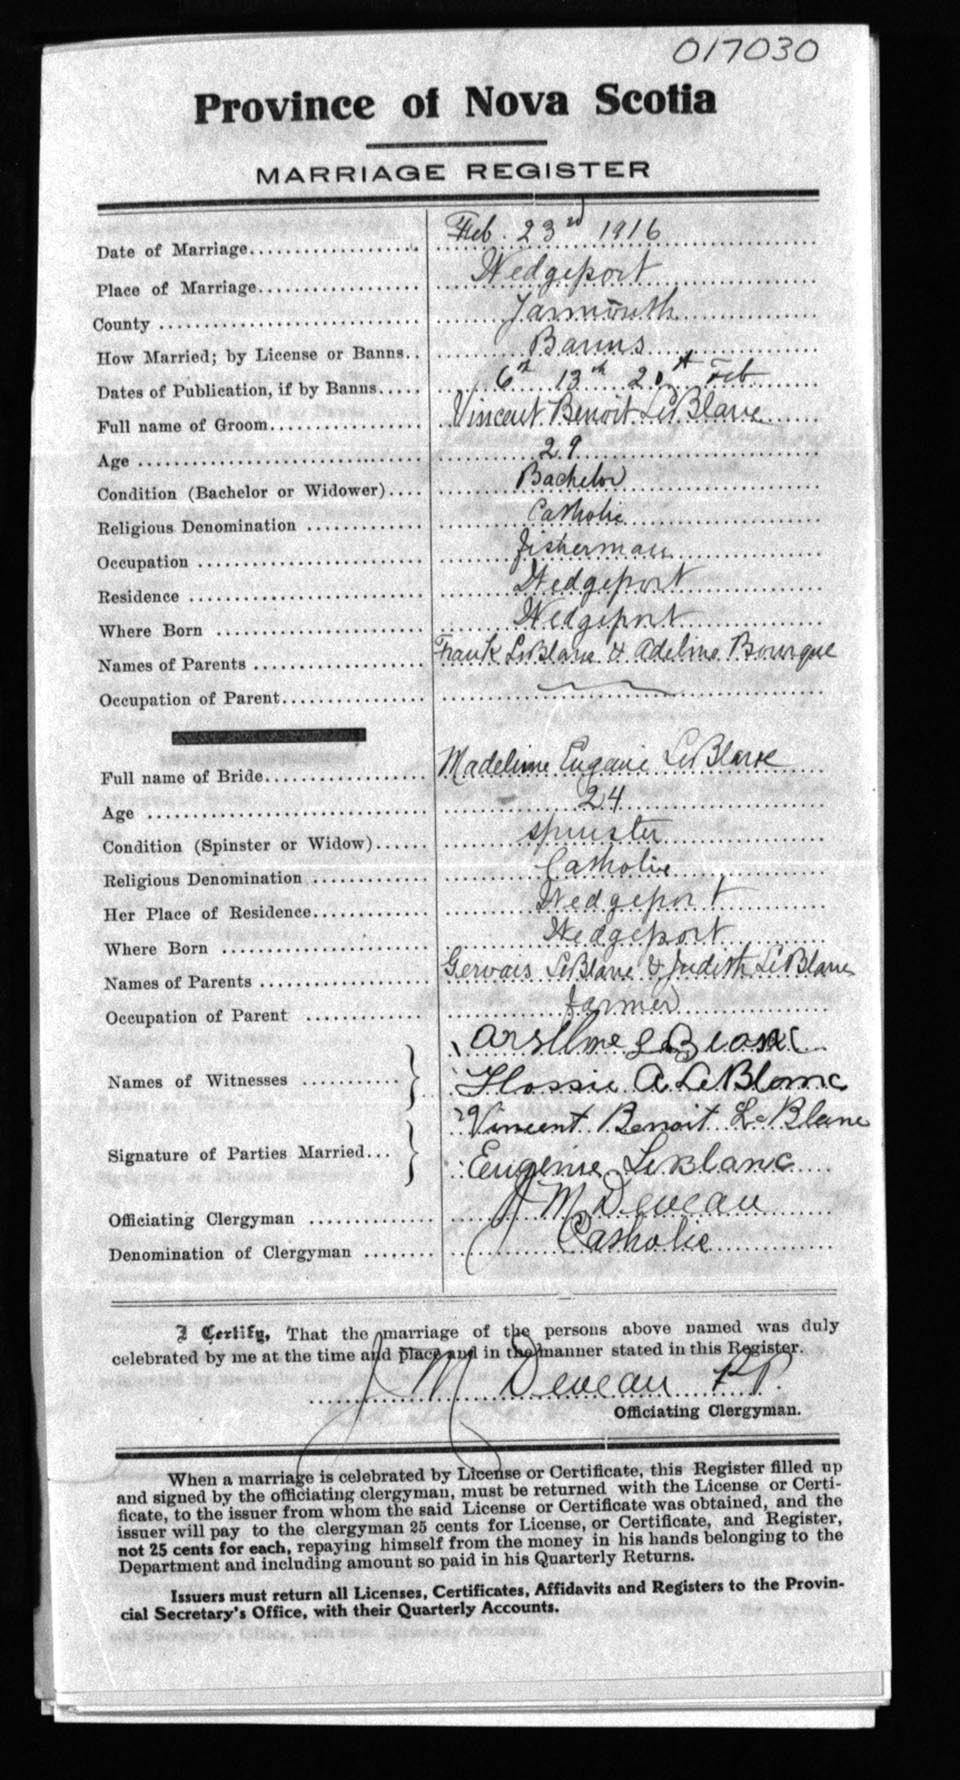 017030
Province of Nova Scotia
MARRIAGE REGISTER
Date of Marriage Feb. 23rd 1916
Place of Marriage Wedgeport
County Yarmouth
How Married; by License or Banns Banns
Dates of Publication, if by Banns 6th 13th 20th Feb
Full name of Groom Vincent Benoit LeBlanc
Age 29
Condition (Bachelor or Widower) Bachelor
Religious Denomination Catholic
Occupation fisherman
Residence Wedgeport
Where Born Wedgeport
Names of Parents Frank LeBlanc & Adeline Bourque
Occupation of Parent
Full name of Bride Madeline Eugenie LeBlanc
Age 24
Condition (Spinster or Widow) spinster
Religious Denomination Catholic
Her Place of Residence Wedgeport
Where Born Wedgeport
Names of Parents Gervais LeBlanc & Judith LeBlanc
Occupation of Parent farmer
Names of Witnesses LeBlanc
Flossie A LeBlanc
Signature of Parties Married Vincent Benoit LeBlanc
Eugenie LeBlanc
Officiating Clergyman J M Deveau
Denomination of Clergyman Catholic
I Certify, That the marriage of the persons above named was duly
celebrated by me at the time and place and in the manner stated in this Register.
J M Deveau P.P.
Officiating Clergyman.
When a marriage is celebrated by License or Certificate, this Register filled up
and signed by the officiating clergyman, must be returned with the License or Certi-
ficate, to the issuer from whom the said License or Certificate was obtained, and the
issuer will pay to the clergyman 25 cents for License, or Certificate, and Register,
not 25 cents for each, repaying himself from the money in his hands belonging to the
Department and including amount so paid in his Quarterly Returns.
Issuers must return all Licenses, Certificates, Affidavits and Registers to the Provin-
cial Secretary's Office, with their Quarterly Accounts.